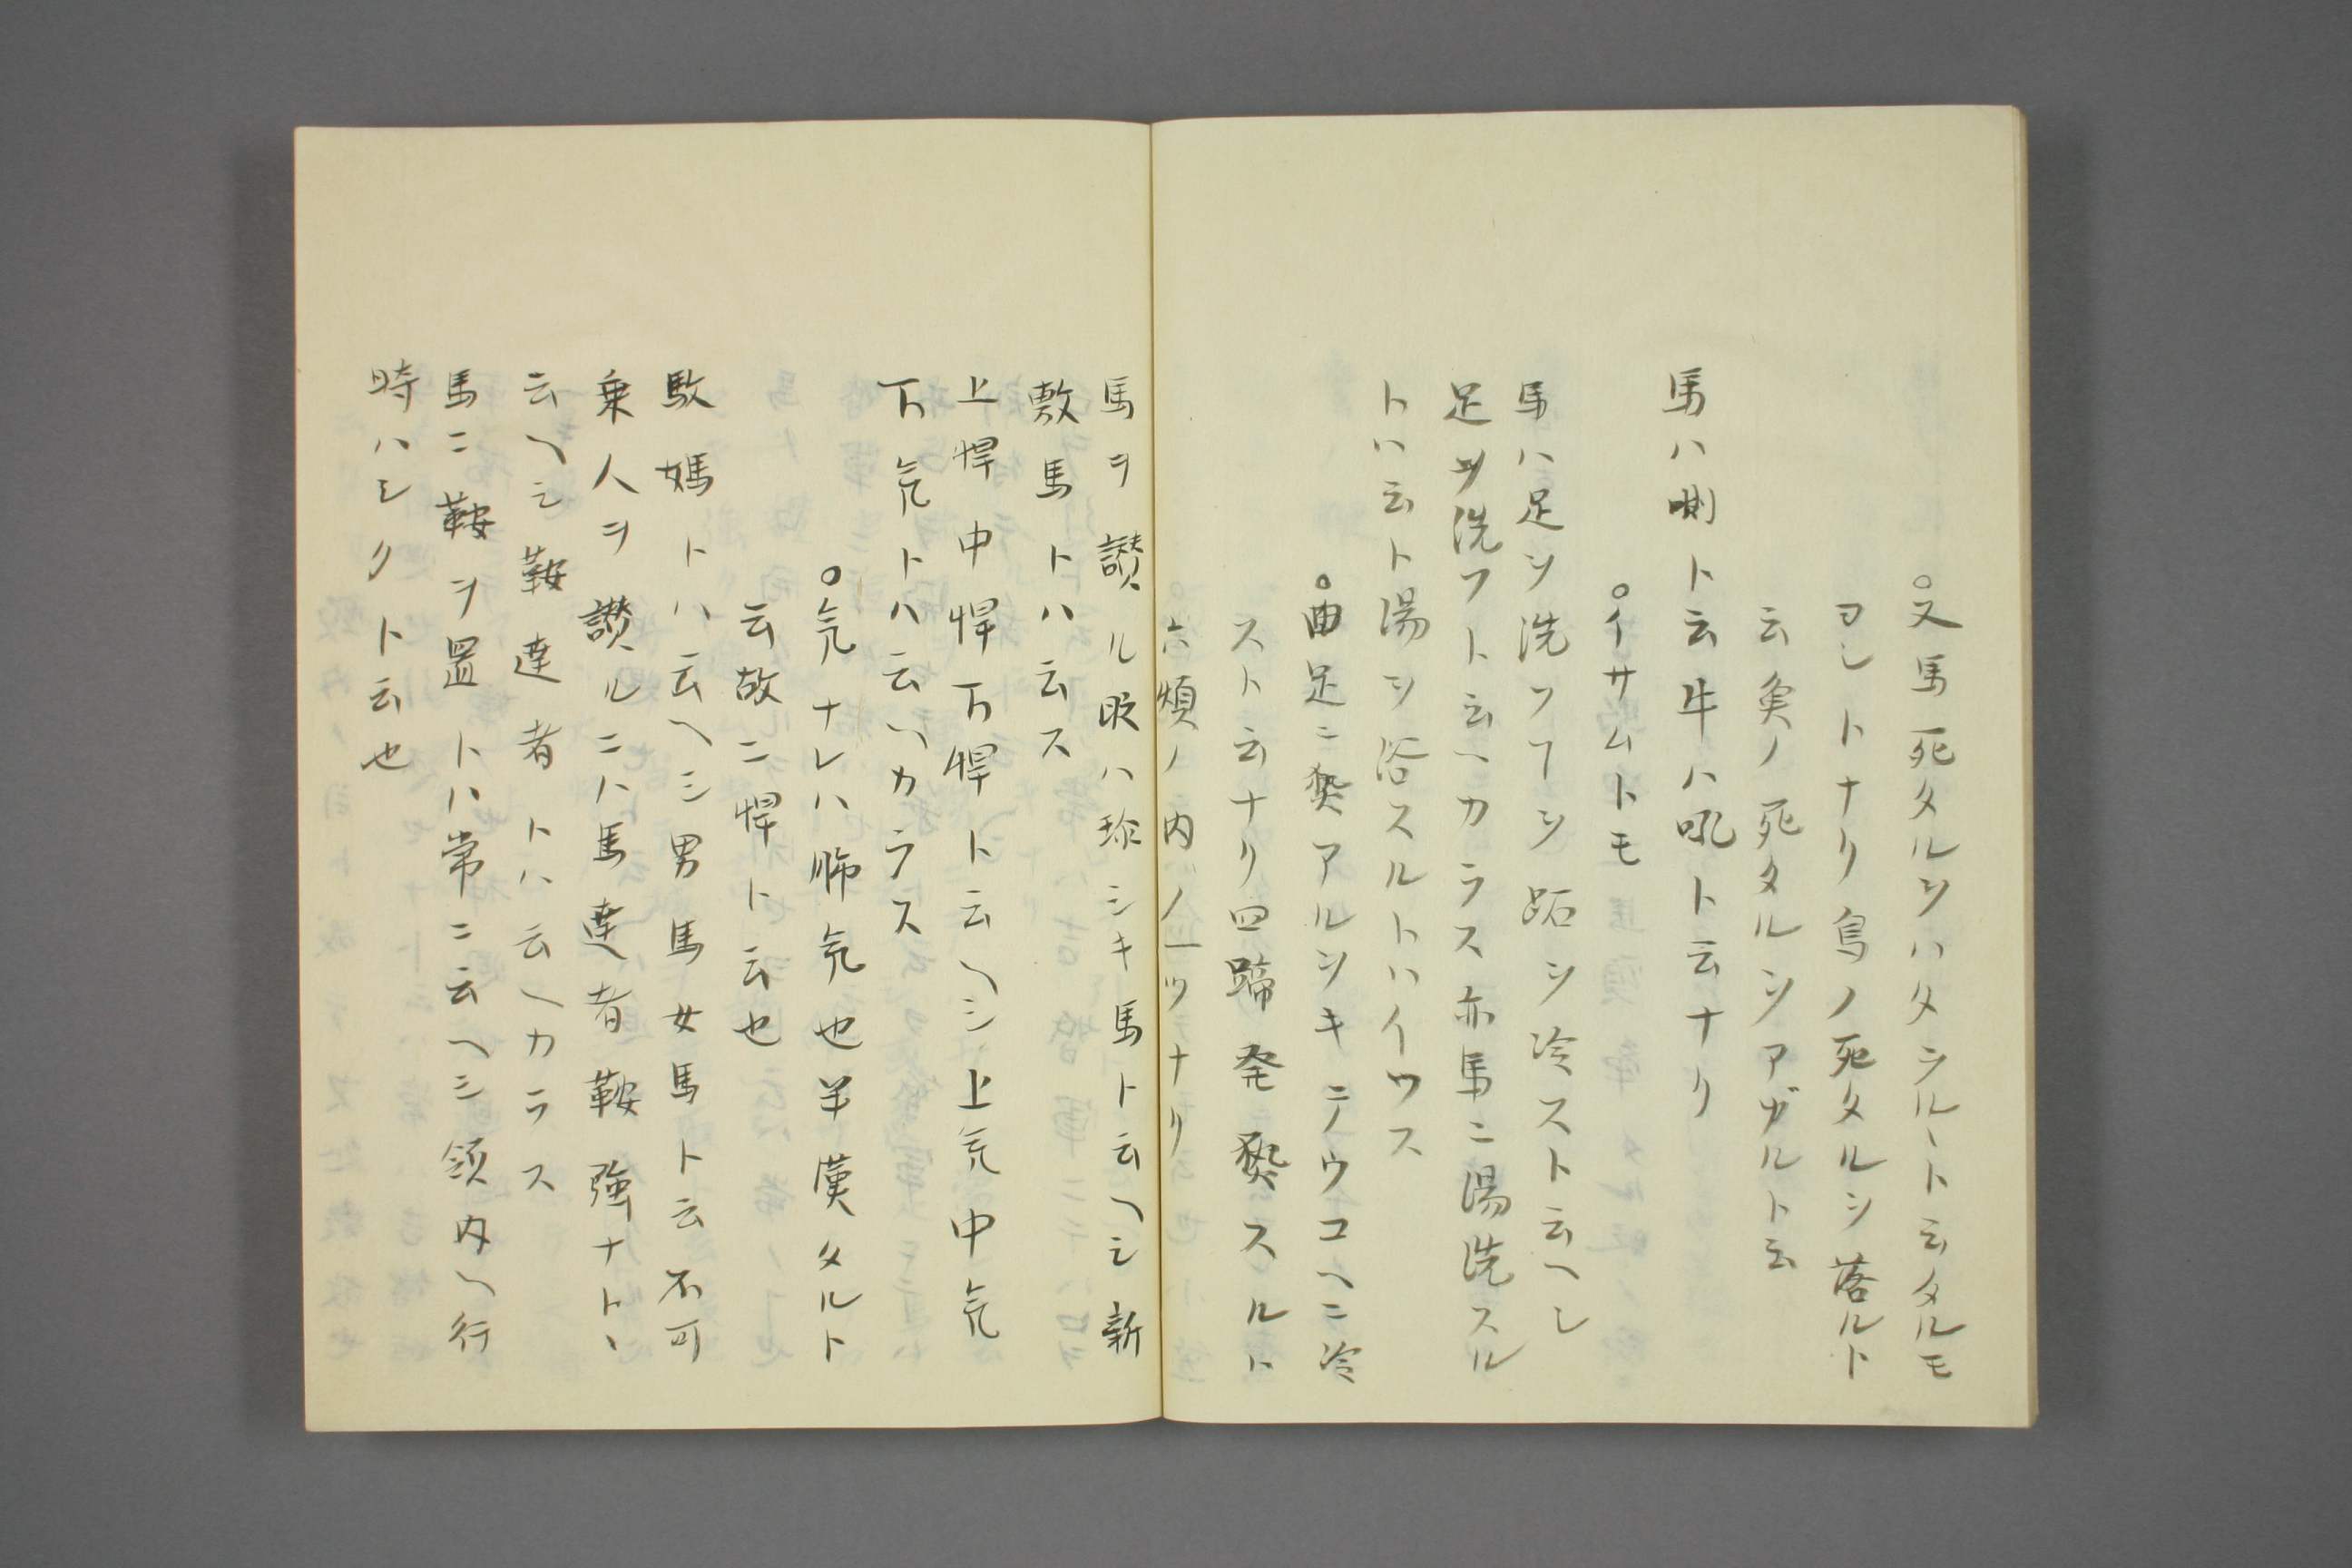 ○又馬死タルヲハタヲルヽト云タルモ
ヨシトナリ鳥ノ死タルヲ落ルト
云魚ノ死タルヲアガルト云
馬ハ嘶ト云牛ハ吼ト云ナリ
○イサムトモ
馬ハ足ヲ洗フヿヲ跖ヲ冷ストト云ヘシ
足ヲ洗フト云ヘカラス亦馬ニ湯洗スル
トハ云ト湯ヲ浴スルトハイワス
○曲足ニ爇アルヲキニウコヘニ冷
スト云ナリ四蹄発爇スルト
六煩ノ内ノ一ツナリ
馬ヲ讃ル时ハ珍シキ馬ト云ヘシ新
敷馬トハ云ス
上悍中悍下悍ト云ヘシ上気中気
下気トハ云ヘカラス
○気ナレハ肺気也羊漢タルト
云故ニ悍ト云也
駇媽トハ云ヘシ男馬女馬ト云不可
乗人ヲ讃ルニハ馬達者鞍強ナトヽ
云ヘシ鞍達者トハ云ヘカラス
馬ニ鞍ヲ置トハ常ニ云ヘシ領内ヘ行
時ハシクト云也